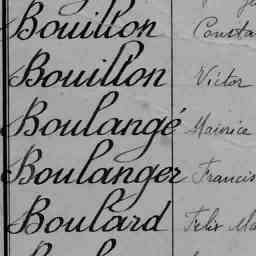 Bouillon Consta
Bouillon Victor
Boulangé Maurice
Boulanger Francis
Boulard Félix Ma